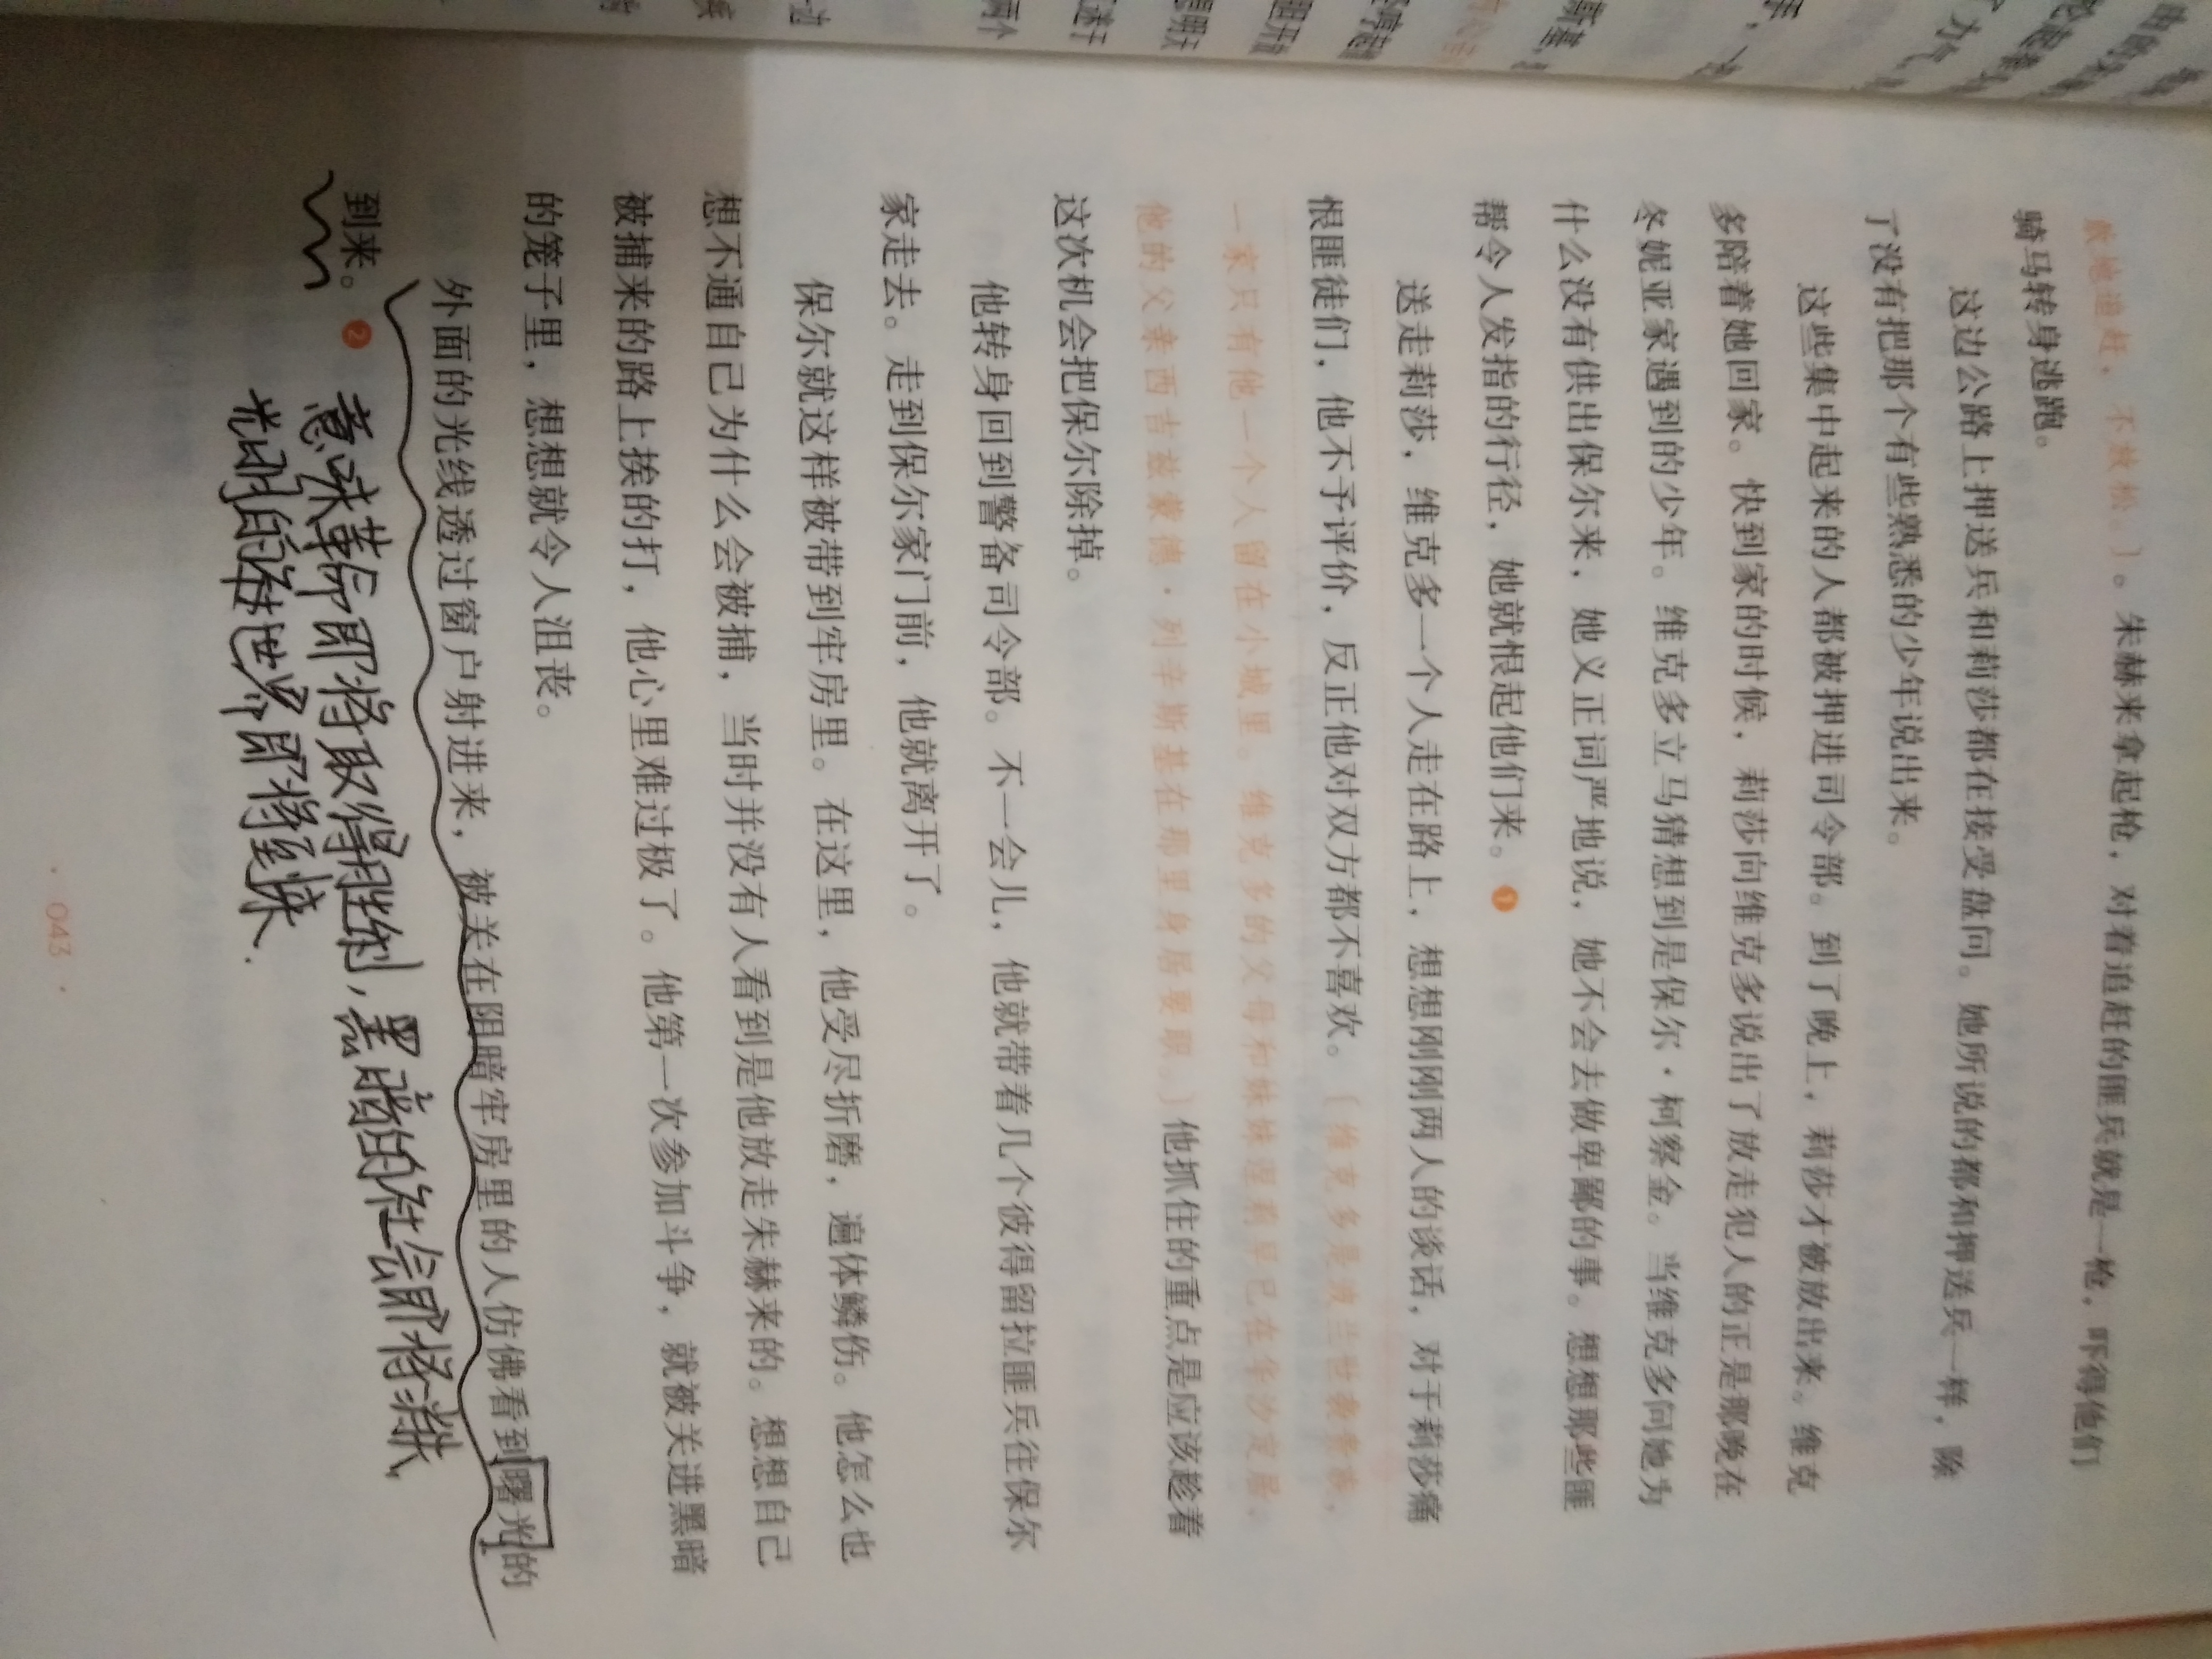 敌地追赶，不放松〕。朱赫来拿起枪，对着追赶的匪兵就是一枪，吓得他们
骑马转身逃跑。
这边公路上押送兵和莉莎都在接受盘问。她所说的都和押送兵一样，除
了没有把那个有些熟悉的少年说出来。
这些集中起来的人都被押进司令部。到了晚上，莉莎才被放出来。维克
多陪着她回家。快到家的时候，莉莎向维克多说出了放走犯人的正是那晚在
冬妮亚家遇到的少年。维克多立马猜想到是保尔·柯察金。当维克多问她为
什么没有供出保尔来，她义正词严地说，她不会去做卑鄙的事。想想那些匪
帮令人发指的行径，她就恨起他们来。❶
送走莉莎，维克多一个人走在路上，想想刚刚两人的谈话，对于莉莎痛
恨匪徒们，他不予评价，反正他对双方都不喜欢。〔维克多是波兰世袭贵族，
一家只有他一个人留在小城里。维克多的父母和妹妹涅莉早已在华沙定居，
他的父亲西吉兹蒙德·列辛斯基在那里身居要职。〕他抓住的重点是应该趁着
这次机会把保尔除掉。
他转身回到警备司令部。不一会儿，他就带着几个彼得留拉匪兵往保尔
家走去。走到保尔家门前，他就离开了。
保尔就这样被带到牢房里。在这里，他受尽折磨，遍体鳞伤。他怎么也
想不通自己为什么会被捕，当时并没有人看到是他放走朱赫来的。想想自己
被捕来的路上挨的打，他心里难过极了。他第一次参加斗争，就被关进黑暗
的笼子里，想想就令人沮丧。
外面的光线透过窗户射进来，被关在阴暗牢房里的人仿佛看到曙光的
到来。❷
意味革命即将取得胜利，黑暗的社会即将消失，
光明的新世界即将到来.
· 043 ·